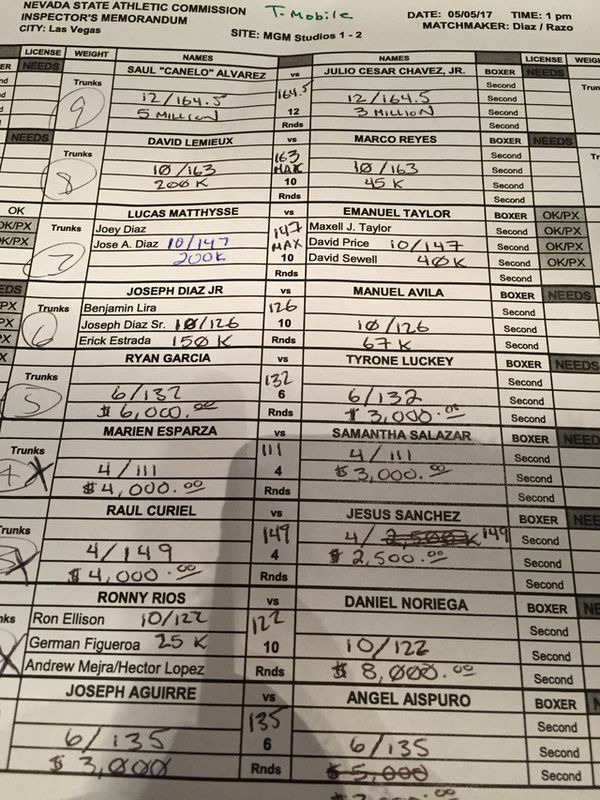 NEVADA STATE ATHLETIC COMMISSION T-Mobile DATE: 05/05/17 TIME: 1 pm
INSPECTOR'S MEMORANDUM MATCHMAKER: Diaz / Razo
CITY: Las Vegas SITE: MGM Studios 1 - 2
LICENSE WEIGHT NAMES NAMES LICENSE
ER NEEDS SAUL "CANELO" ALVAREZ vs JULIO CESAR CHAVEZ, JR. BOXER NEEDS
Trunks 164.5 Second
9 12/164.5 12/164.5 Second
5 MILLION 12 3 MILLION Second
Rnds Second
NEEDS DAVID LEMIEUX vs MARCO REYES BOXER NEEDS
Trunks 163 Second
8 10/163 MAX 10/163 Second
200K 10 45K Second
Rnds Second
OK LUCAS MATTHYSSE vs EMANUEL TAYLOR BOXER OK/PX
OK/PX Trunks Joey Diaz 147 Maxell J. Taylor Second OK/PX
OK/PX Jose A. Diaz 10/147 MAX David Price 10/147 Second OK/PX
7 200K 10 David Sewell 40K Second OK/PX
Rnds Second
EDS JOSEPH DIAZ JR vs MANUEL AVILA BOXER NEEDS
PX Trunks Benjamin Lira 126 Second
PX 6 Joseph Diaz Sr. 10/126 10 10/126 Second
PX Erick Estrada 150K Rnds 67K Second
RYAN GARCIA vs TYRONE LUCKEY BOXER NEEDS
Trunks 132 Second
5 6/132 6 6/132 Second
$6,000.00 Rnds $3,000.00 Second
MARIEN ESPARZA vs SAMANTHA SALAZAR BOXER NEED
Trunks 111 Second
4 X 4/111 4 4/111 Second
$4,000.00 Rnds $3,000.00 Second
RAUL CURIEL vs JESUS SANCHEZ BOXER NEE
Trunks 149 4/ 2,500K 149 Second
3 X 4/149 4 $2,500.00 Second
$4,000.00 Rnds Second
RONNY RIOS vs DANIEL NORIEGA BOXER NE
nks Ron Ellison 10/122 122 Second
X German Figueroa 25K 10 10/122 Second
Andrew Mejra/Hector Lopez Rnds $8,000.00 Second
JOSEPH AGUIRRE vs ANGEL AISPURO BOXER N
135 Second
6/135 6 6/135 Second
$3,000 Rnds $5,000 Second